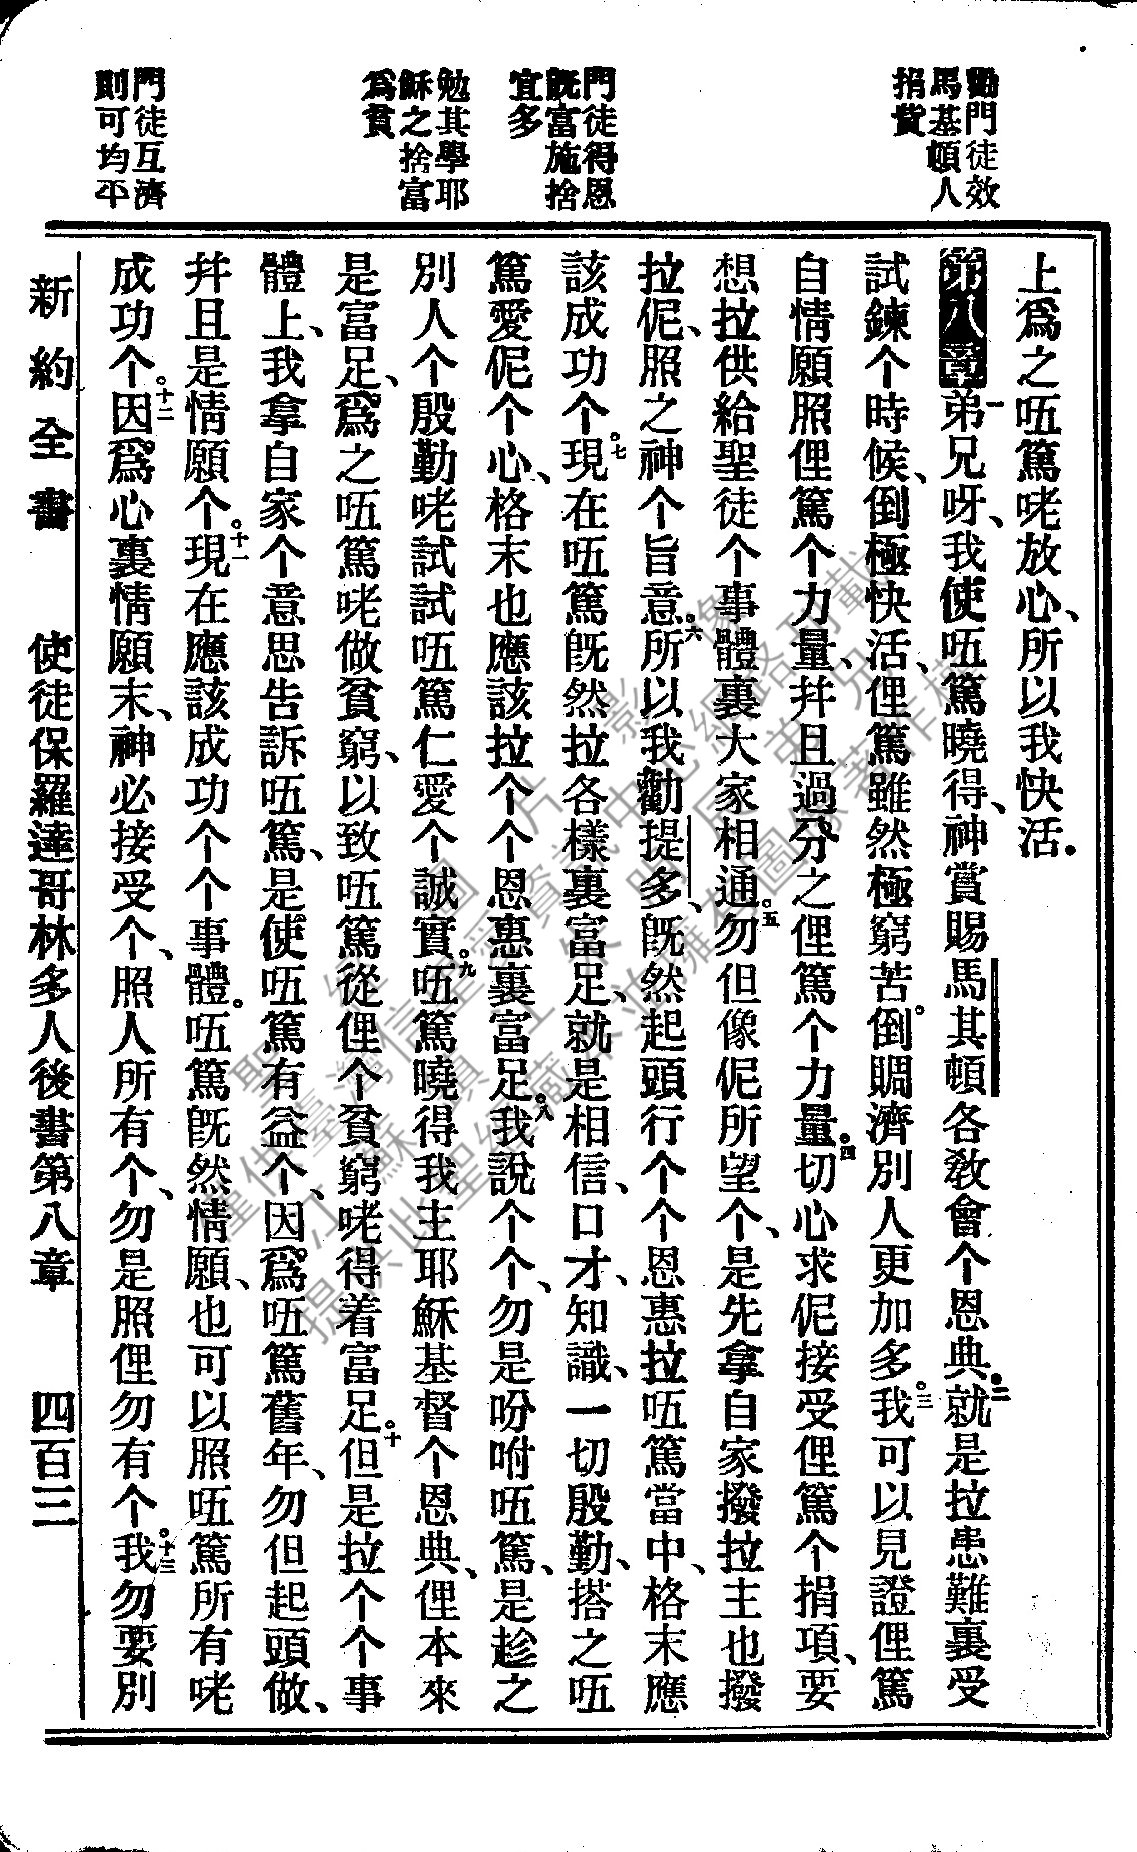 勸門徒效
馬基頓人
捐貲
門徒得恩
旣富施捨
宜多
勉其學耶
穌之捨富
爲貧
門徒互濟
則可均平
上爲之㕶篤咾放心、所以我快活．
第八章一弟兄呀、我使㕶篤曉得、神賞賜馬其頓各敎會个恩典。二就是拉患難裏受
試鍊个時候、倒極快活、俚篤雖然極窮苦。倒賙濟別人更加多。三我可以見證俚篤
自情願照俚篤个力量、幷且過分之俚篤个力量。四切心求伲接受俚篤个捐項、要
想拉供給聖徒个事體裏大家相通。五勿但像伲所望个、是先拿自家撥拉主也撥
拉伲、照之神个旨意。六所以我勸提多、旣然起頭行个个恩惠拉㕶篤當中、格末應
該成功个。七現在㕶篤旣然拉各樣裏富足、就是相信、口才、知識、一切殷勤、搭之㕶
篤愛伲个心、格末也應該拉个个恩惠裏富足。八我說个个、勿是吩咐㕶篤、是趁之
別人个殷勤咾試試㕶篤仁愛个誠實。九㕶篤曉得我主耶穌基督个恩典、俚本來
是富足、爲之㕶篤咾做貧窮、以致㕶篤從俚个貧窮咾得着富足。十但是拉个个事
體上、我拿自家个意思告訴㕶篤、是使㕶篤有益个、因爲㕶篤舊年、勿但起頭做、
幷且是情願个。十一現在應該成功个个事體。㕶篤旣然情願、也可以照㕶篤所有咾
成功个。十二因爲心裏情願末、神必接受个、照人所有个、勿是照俚勿有个。十三我勿要別
新約全書　使徒保羅達哥林多人後書第八章　四百三
聖經圖片影像